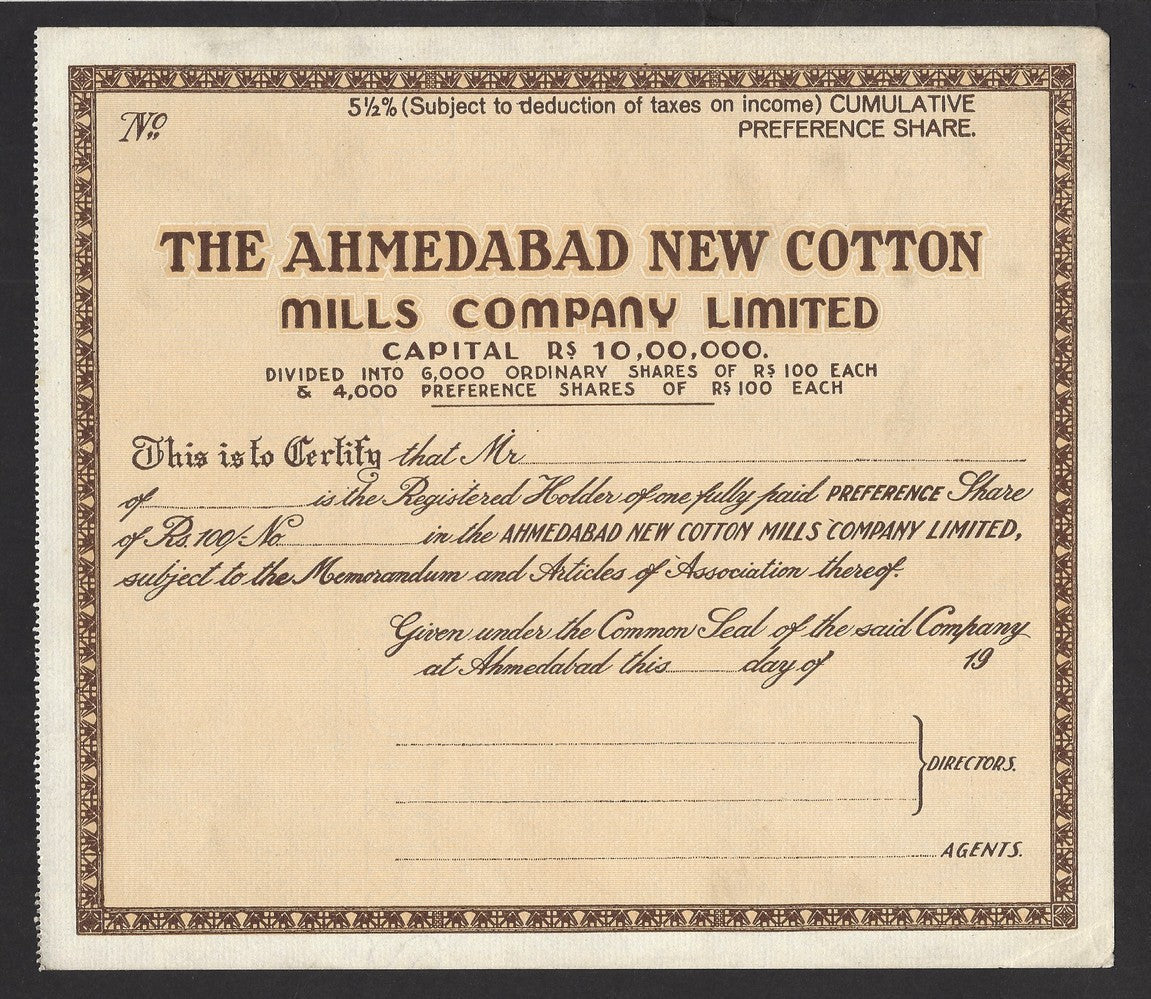 5½% (Subject to deduction of taxes on income) CUMULATIVE
PREFERENCE SHARE.
No
THE AHMEDABAD NEW COTTON
MILLS COMPANY LIMITED
CAPITAL RS 10,00,000.
DIVIDED INTO 6,000 ORDINARY SHARES OF RS 100 EACH
& 4,000 PREFERENCE SHARES OF RS 100 EACH
This is to Certify that Mr
of is the Registered Holder of one fully paid PREFERENCE Share
of Rs. 100/- No in the AHMEDABAD NEW COTTON MILLS COMPANY LIMITED,
subject to the Memorandum and Articles of Association thereof.
Given under the Common Seal of the said Company
at Ahmedabad this day of 19
DIRECTORS.
AGENTS.